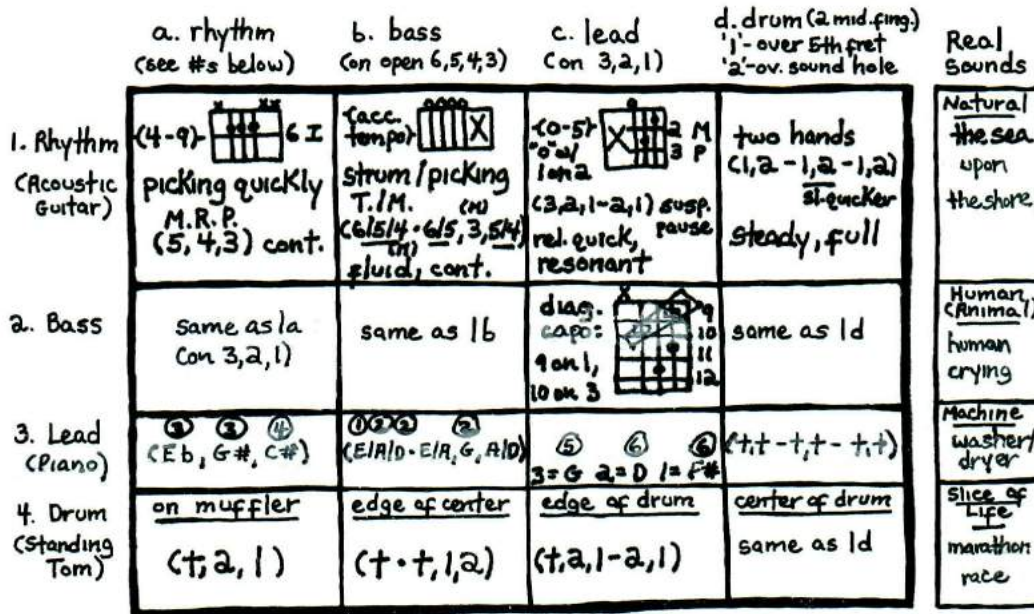 a. rhythm
(see #s below)
b. bass
(on open 6,5,4,3)
c. lead
(on 3,2,1)
d. drum (2 mid. fing.)
'1'- over 5th fret
'2'-ov. sound hole
Real
Sounds
1. Rhythm
(Acoustic
Guitar)
x xx
(4-9)
6 I
picking quickly
M.R.P.
(5,4,3) cont.
(acc.
tempo)
oooo
X
strum/picking
T./M. (M)
(6/5/4 · 6/5, 3, 5/4)
(M)
fluid, cont.
(0-5)
"0" w/
1 on 2
o
X
2 M
3 P
(3,2,1-2,1) susp.
pause
rel. quick,
resonant
two hands
(1,2 - 1,2 - 1,2)
sl. quicker
steady, full
Natural
the sea
upon
the shore
2. Bass
same as 1a
(on 3,2,1)
same as 1b
diag.
capo:
9 on 1,
10 on 3
X
9
10
11
12
same as 1d
Human
(Animal)
human
crying
3. Lead
(Piano)
3 3 4
(Eb, G#, C#)
1 2 2 2
(E/A/D · E/A, G, A/D)
5 6 6
3=G 2=D 1=F#
(t,t - t,t - t,t)
Machine
washer/
dryer
4. Drum
(Standing
Tom)
on muffler
(t, 2, 1)
edge of center
(t · t, 1, 2)
edge of drum
(t, 2, 1 - 2, 1)
center of drum
same as 1d
Slice of
Life
marathon
race